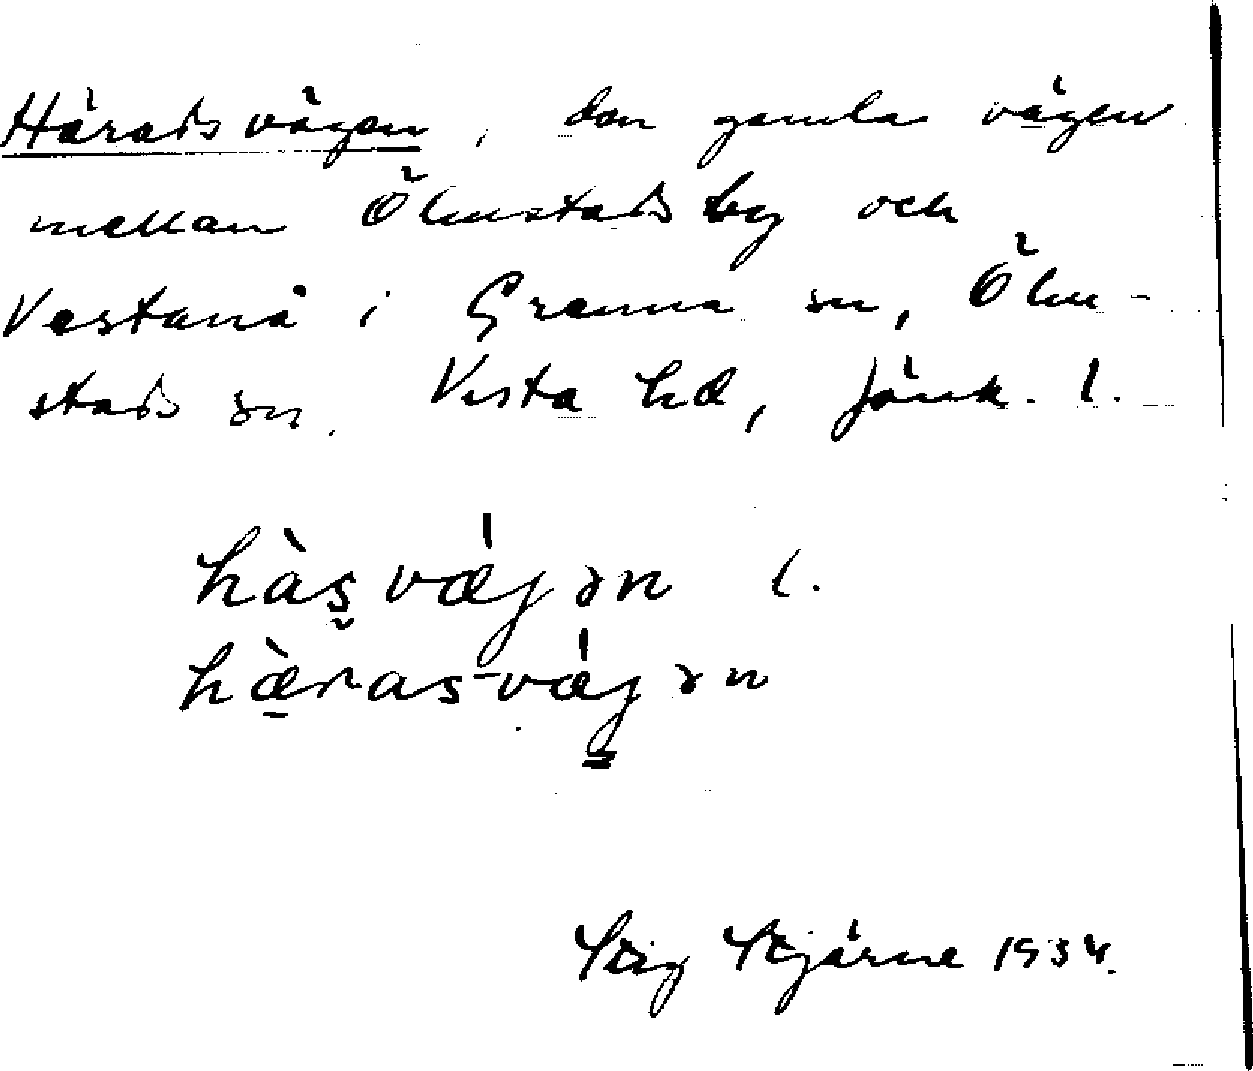 Häradsvägen, den gamla vägen
mellan Ölmstads by och
Vestanå i Grenna sn, Ölm-
stads sn. Vista hd, Jönk. l.
hàs̬vǽjən l.
hæ̀ras-vǽjən
Stig Stjärne 1934.